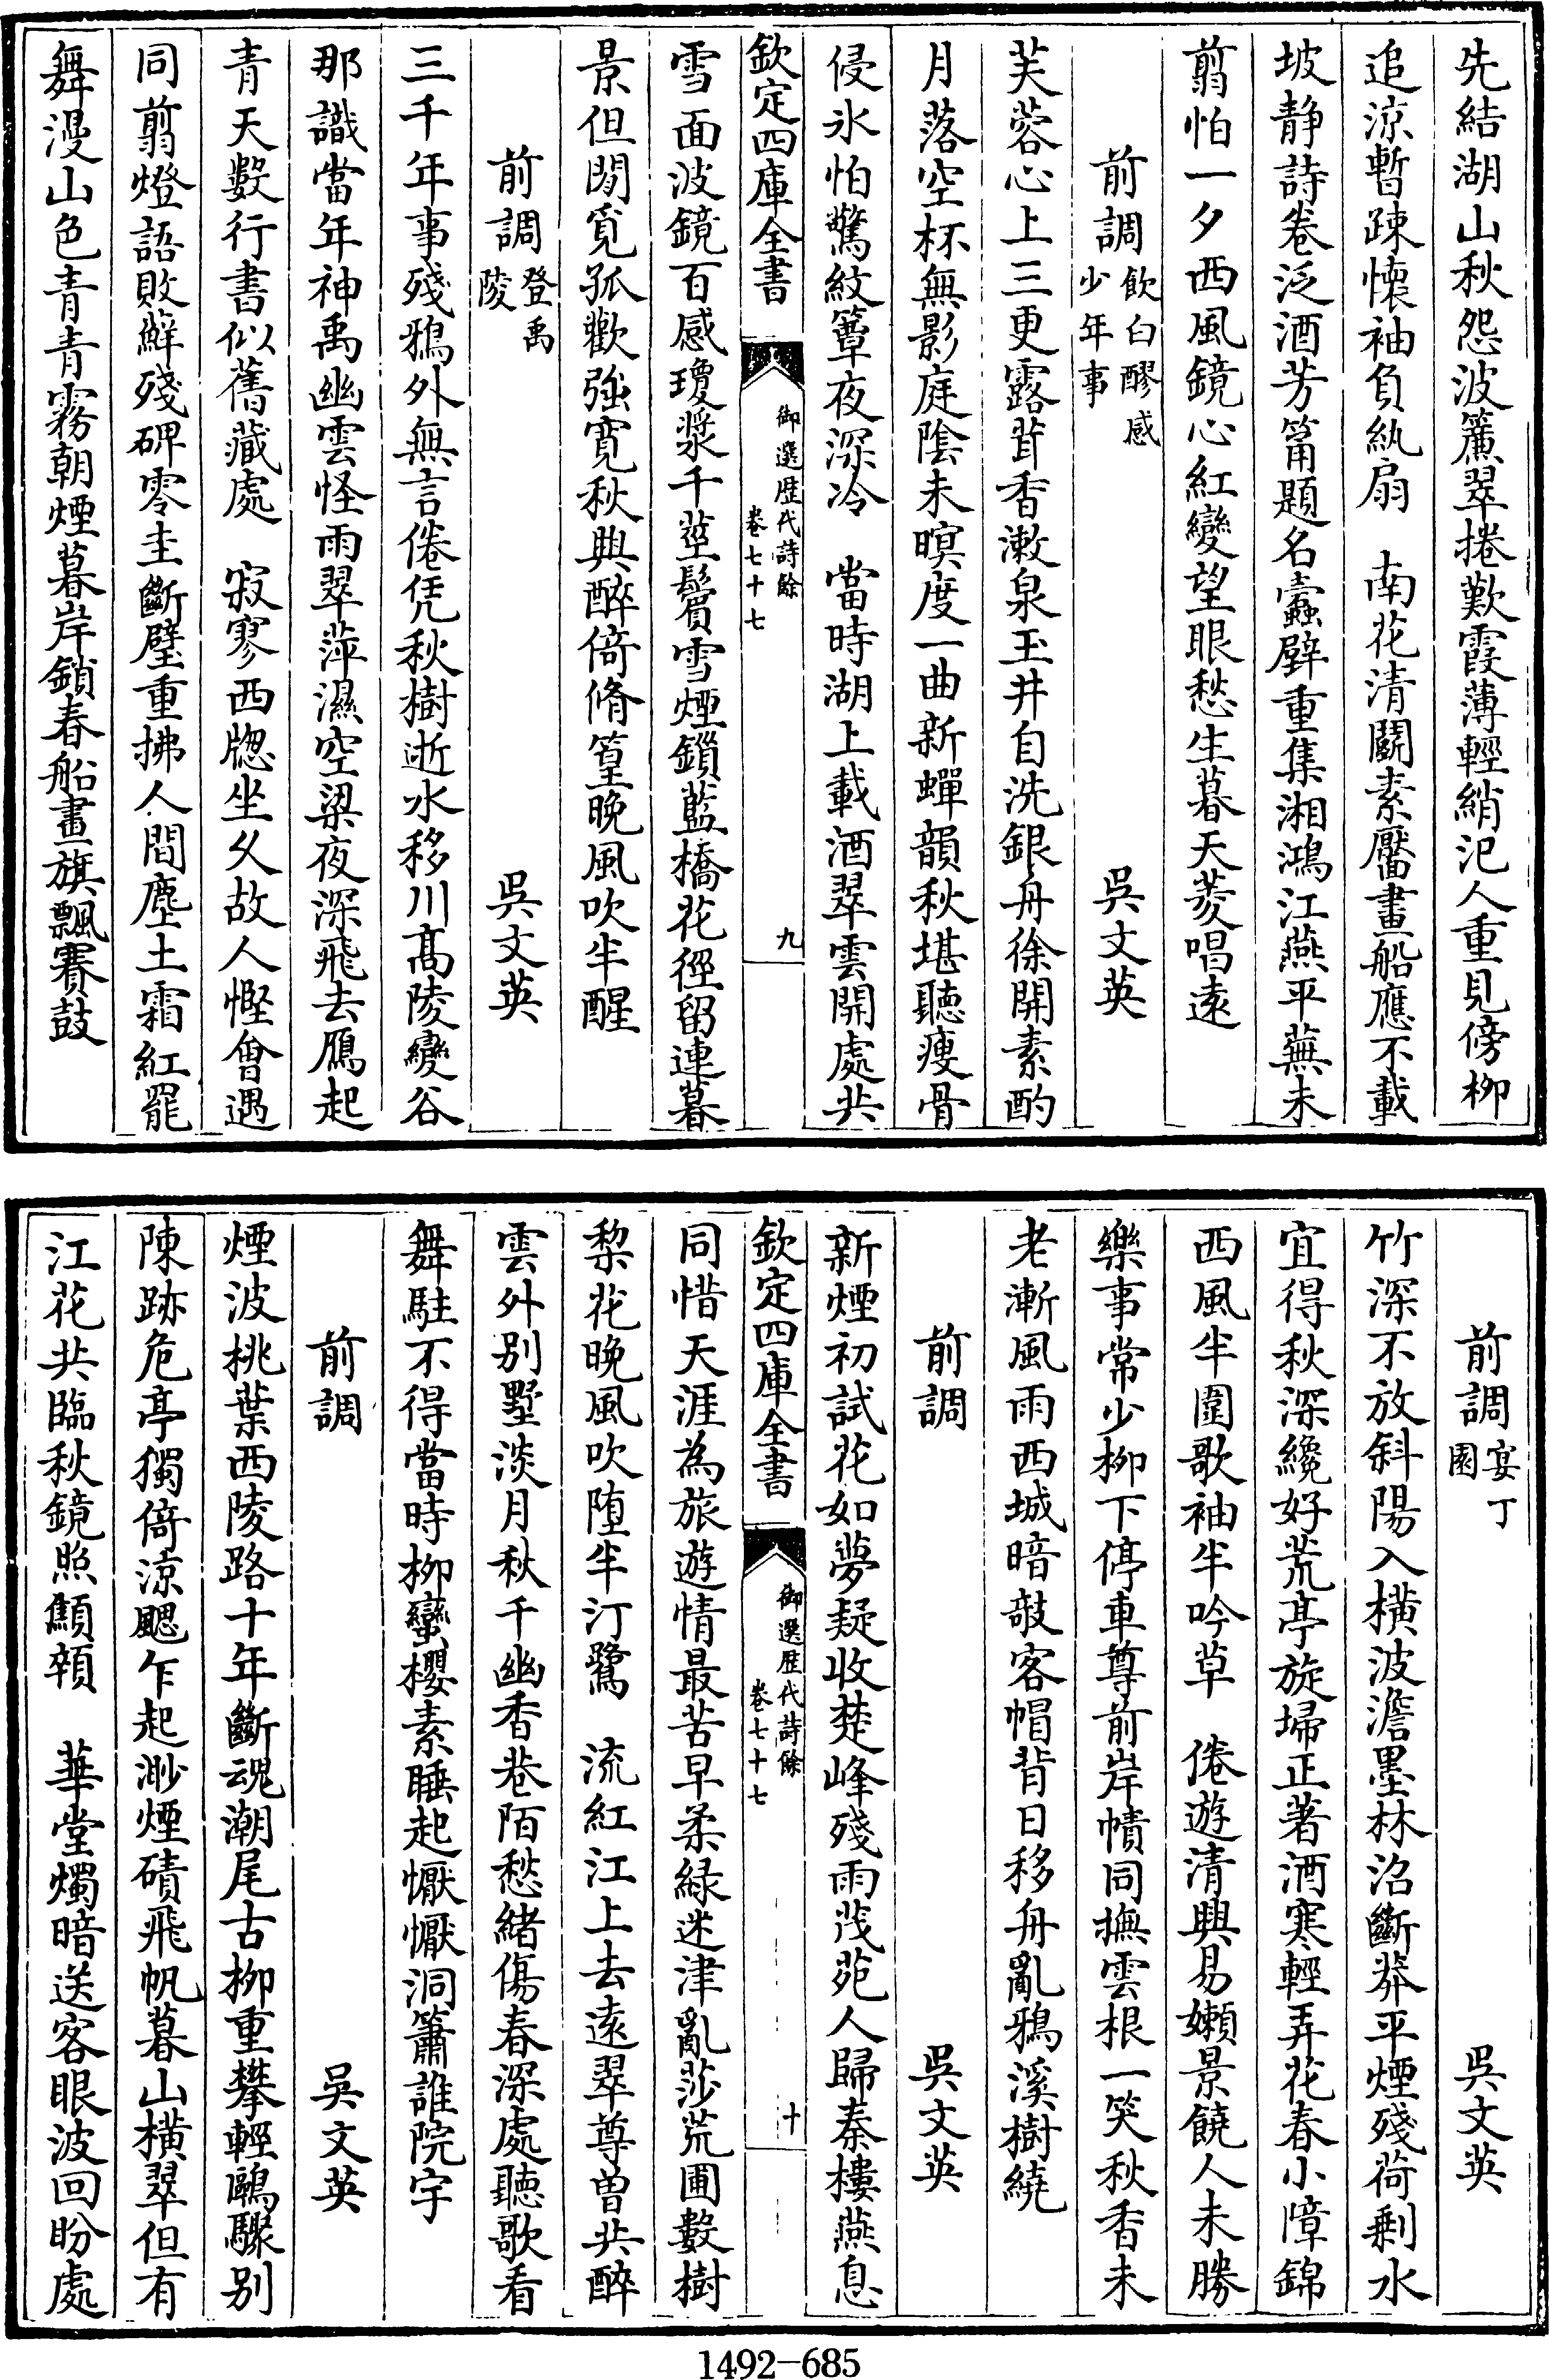 先結湖山秋怨波簾翠捲歎霞薄輕綃汜人重見傍柳
追涼暫疎懷袖負紈扇　南花清鬭素靨畫船應不載
坡靜詩卷泛酒芳筩題名蠹壁重集湘鴻江燕平蕪未
翦怕一夕西風鏡心紅變望眼愁生暮天菱唱遠
前調飲白醪感少年事　吳文英
芙蓉心上三更露茸香漱泉玉井自洗銀舟徐開素酌
月落空杯無影庭陰未暝度一曲新蟬韻秋堪聽瘦骨
侵氷怕驚紋簟夜深冷　當時湖上載酒翠雲開處共
欽定四庫全書　御選歷代詩餘　卷七十七　九
雪面波鏡百感瓊漿千莖鬢雪煙鎖藍橋花徑留連暮
景但閒覓孤歡強寬秋興醉倚脩篁晚風吹半醒
前調登禹陵　吳文英
三千年事殘鴉外無言倦凭秋樹逝水移川髙陵變谷
那識當年神禹幽雲怪雨翠萍濕空梁夜深飛去鴈起
青天數行書似舊藏處　寂寥西牕坐乆故人慳會遇
同翦燈語敗蘚殘碑零圭斷璧重拂人間塵土霜紅罷
舞漫山色青青霧朝煙暮岸鎖春船畫旗飄賽鼓
前調宴丁園　吳文英
竹深不放斜陽入橫波澹墨林沼斷莽平煙殘荷剩水
宜得秋深纔好荒亭旋埽正著酒寒輕弄花春小障錦
西風半圍歌袖半吟草　倦遊清興易嬾景饒人未勝
樂事常少柳下停車尊前岸幘同撫雲根一笑秋香未
老漸風雨西城暗敲客帽背日移舟亂鴉溪樹繞
前調　吳文英
新煙初試花如夢疑收楚峰殘雨茂苑人歸秦樓燕息
欽定四庫全書　御選歷代詩餘　卷七十七　十
同惜天涯為旅遊情最苦早柔綠迷津亂莎荒圃數樹
梨花晚風吹墮半汀鷺　流紅江上去遠翠尊曾共醉
雲外别墅淡月秋千幽香巷陌愁緒傷春深處聽歌看
舞駐不得當時柳蠻櫻素睡起懨懨洞簫誰院宇
前調　吳文英
煙波桃葉西陵路十年斷魂潮尾古柳重攀輕鷗驟别
陳跡危亭獨倚涼颸乍起渺煙磧飛帆暮山橫翠但有
江花共臨秋鏡照顦顇　華堂燭暗送客眼波回盼處
1492-685